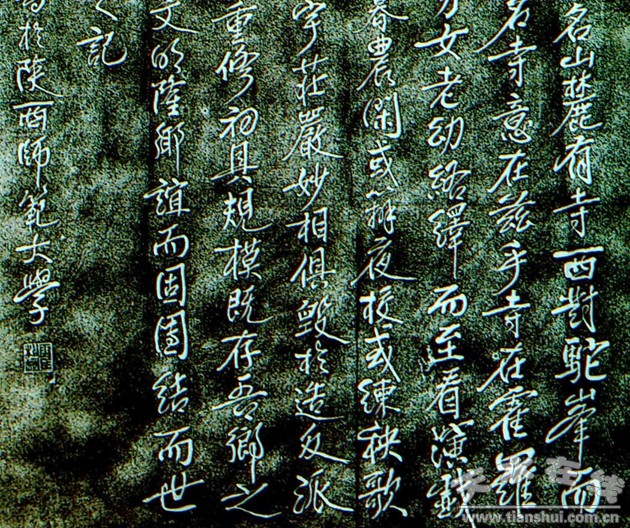 名山麓有寺西對駝峯而
名寺意在兹乎寺在霍羅
男女老幼絡繹而至看演戲
春農閑或辦夜校或練秧歌
宇莊嚴妙相俱毀於造反派
重修初具規模既存吾鄉之
文明隆鄉誼而固團結而世
記
於陝西師範大學
天水在线
www.tianshui.com.cn